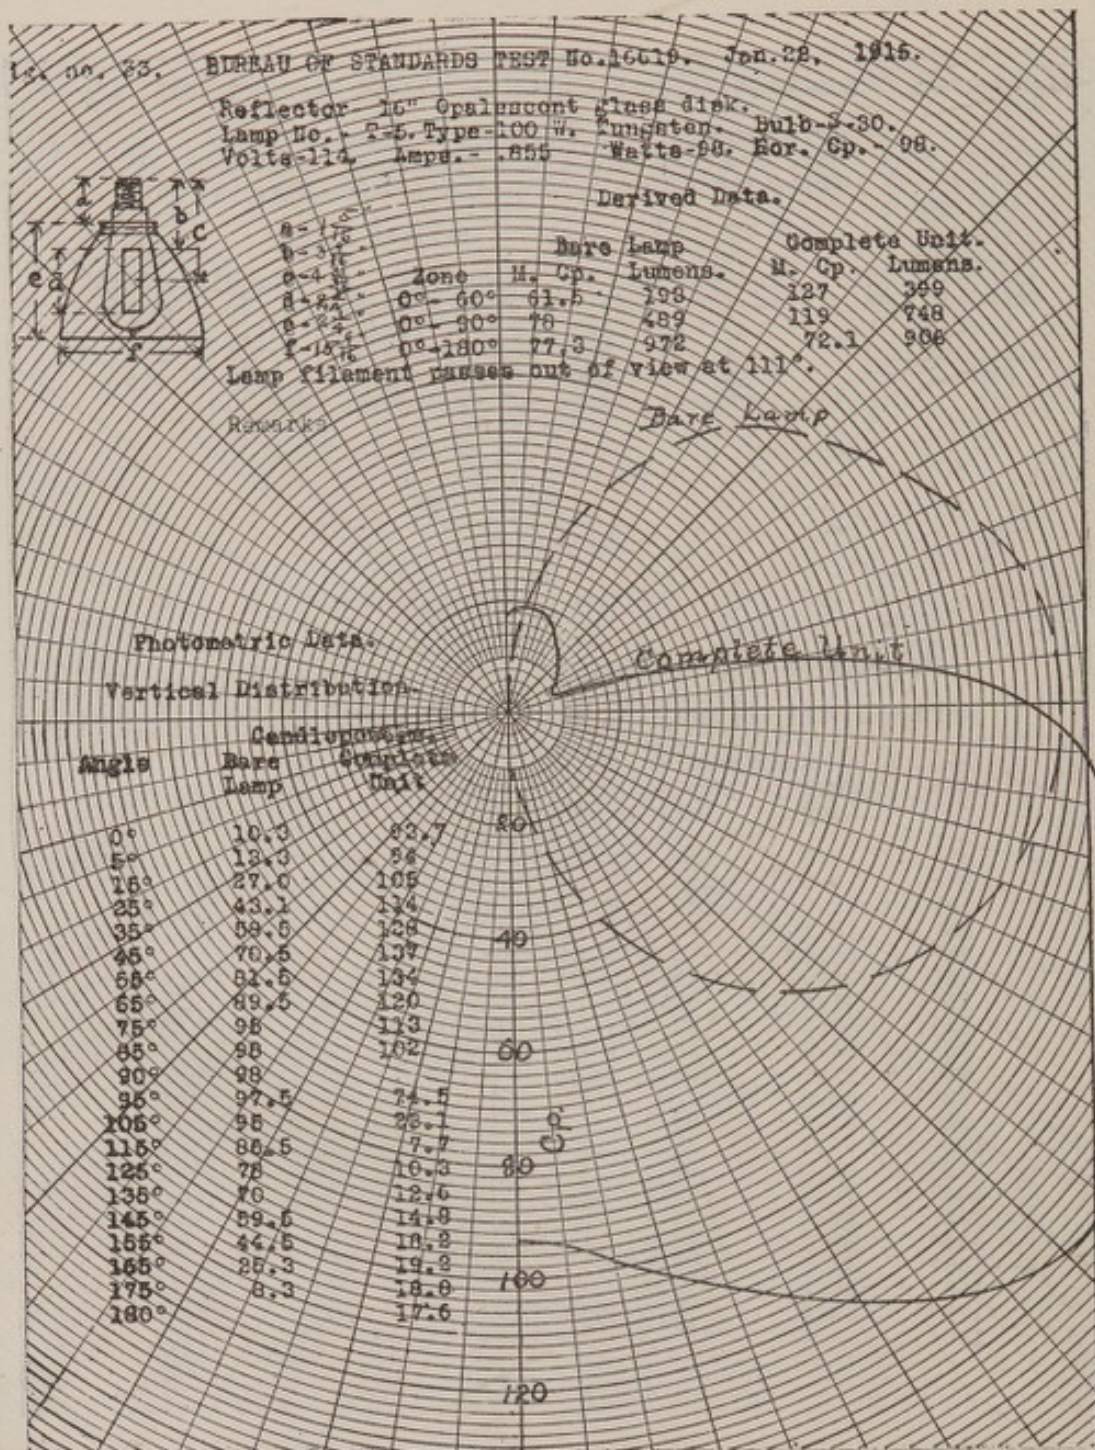 no. 33. BUREAU OF STANDARDS TEST No.16619. Jan.22, 1915.
Reflector- 16" Opalescent glass disk.
Lamp No.- T-5. Type-100 W. Tungsten. Bulb-S-30.
Volts-114. Amps.- .855 Watts-98. Hor. Cp.- 98.
Derived Data.
Bare Lamp Complete Unit.
Zone M. Cp. Lumens. M. Cp. Lumens.
0°- 60° 61.5 193 127 399
0°- 90° 78 489 119 748
0°-180° 77.3 972 72.1 906
Lamp filament passes out of view at 111°.
a b c d e f
a-
b-
c-4
d-2
e-
f-15
Remarks
Bare Lamp
Complete Unit
Photometric Data.
Vertical Distribution.
Candlepower.
Angle Bare Complete
Lamp Unit
0° 10.3 93.7
5° 13.3 94
15° 27.0 105
25° 43.1 114
35° 58.5 128
45° 70.5 137
55° 81.5 134
65° 89.5 120
75° 95 113
85° 98 102
90° 98
95° 97.5 74.5
105° 95 23.1
115° 86.5 7.7
125° 78 10.3
135° 70 12.6
145° 59.5 14.8
155° 44.5 18.2
165° 25.3 19.2
175° 8.3 18.8
180° 17.6
20
40
60
80
Cp.
100
120